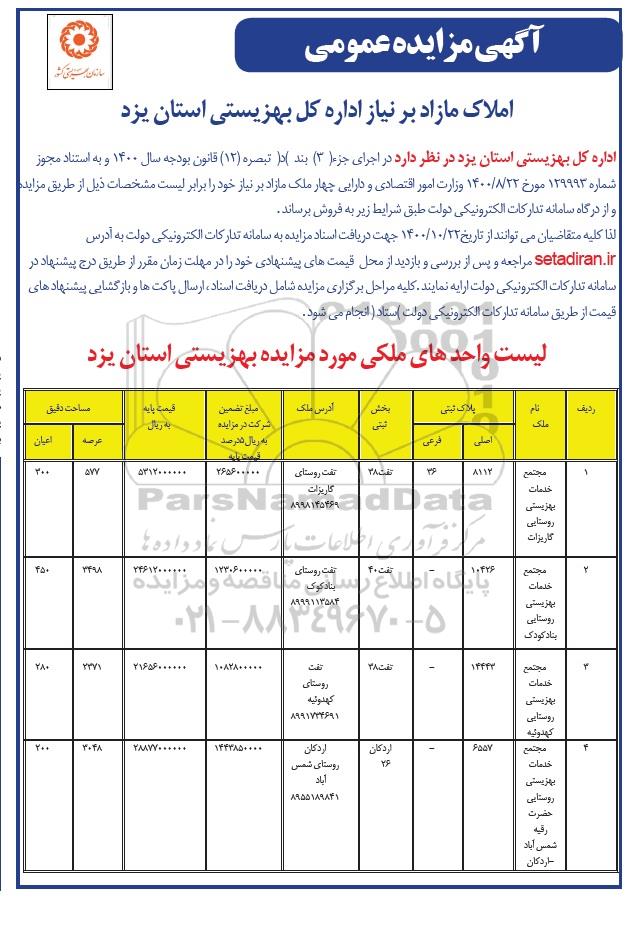 آگهی مزایده عمومی
سازمان بهزیستی کشور
املاک مازاد بر نیاز اداره کل بهزیستی استان یزد
اداره کل بهزیستی استان یزد در نظر دارد در اجرای جزء( ۳) بند )د( تبصره (۱۲) قانون بودجه سال ۱۴۰۰ و به استناد مجوز
شماره ۱۲۹۹۹۳ مورخ ۱۴۰۰/۸/۲۲ وزارت امور اقتصادی و دارایی چهار ملک مازاد بر نیاز خود را برابر لیست مشخصات ذیل از طریق مزایده
و از درگاه سامانه تدارکات الکترونیکی دولت طبق شرایط زیر به فروش برساند .
لذا کلیه متقاضیان می توانند از تاریخ۱۴۰۰/۱۰/۲۲ جهت دریافت اسناد مزایده به سامانه تدارکات الکترونیکی دولت به آدرس
setadiran.ir مراجعه و پس از بررسی و بازدید از محل قیمت های پیشنهادی خود را در مهلت زمان مقرر از طریق درج پیشنهاد در
سامانه تدارکات الکترونیکی دولت ارایه نمایند .کلیه مراحل برگزاری مزایده شامل دریافت اسناد ، ارسال پاکت ها و بازگشایی پیشنهاد های
قیمت از طریق سامانه تدارکات الکترونیکی دولت )ستاد( انجام می شود .
لیست واحد های ملکی مورد مزایده بهزیستی استان یزد
ردیف نام ملک پلاک ثبتی بخش ثبتی آدرس ملک مبلغ تضمین شرکت در مزایده به ریال۵درصد قیمت پایه قیمت پایه به ریال مساحت دقیق
اصلی فرعی عرصه اعیان
۱ مجتمع خدمات بهزیستی روستایی گاریزات ۸۱۱۲ ۳۶ تفت۳۸ تفت روستای گاریزات ۸۹۹۸۱۴۵۴۶۹ ۲۶۵۶۰۰۰۰۰ ۵۳۱۲۰۰۰۰۰۰ ۵۷۷ ۳۰۰
۲ مجتمع خدمات بهزیستی روستایی بنادکودک ۱۰۴۲۶ – تفت۴۰ تفت روستای بنادکوک ۸۹۹۹۱۱۳۵۸۴ ۱۲۳۰۶۰۰۰۰۰ ۲۴۶۱۲۰۰۰۰۰۰ ۳۴۹۸ ۴۵۰
۳ مجتمع خدمات بهزیستی روستایی کهدوئیه ۱۴۴۴۳ – تفت۳۸ تفت روستای کهدوئیه ۸۹۹۱۷۳۴۶۹۱ ۱۰۸۲۸۰۰۰۰۰ ۲۱۶۵۶۰۰۰۰۰۰ ۲۳۷۱ ۲۸۰
۴ مجتمع خدمات بهزیستی روستایی حضرت رقیه شمس آباد –اردکان ۶۵۵۷ – اردکان ۲۶ اردکان روستای شمس آباد ۸۹۵۵۱۸۹۸۴۱ ۱۴۴۳۸۵۰۰۰۰ ۲۸۸۷۷۰۰۰۰۰۰ ۳۰۴۸ ۲۰۰
ParsNamadData
مرکز فرآوری اطلاعات پارس نماد داده ها
پایگاه اطلاع رسانی مناقصه و مزایده
۰۲۱-۸۸۳۴۹۶۷۰-۵